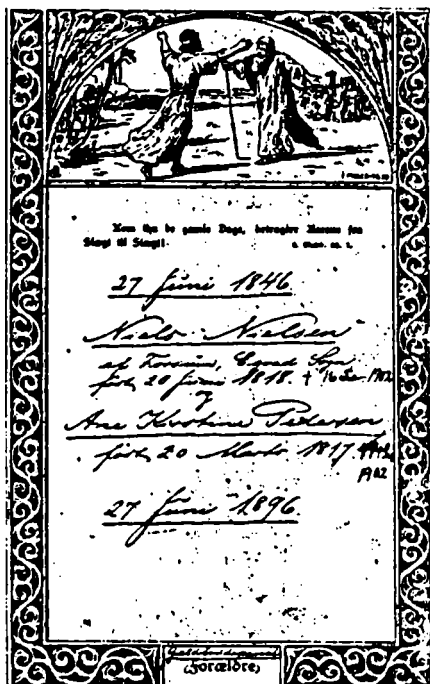 Kom thu de gamle Dage, betragter Aarene fra
Slægt til Slægt!
27 Juni 1846
Niels Nielsen
af Sogn
født 20 Juni 1818. † 1902
Ane Kirstine Pedersen
født 20 Marts 1817
1902
27 Juni 1896.
Forældre